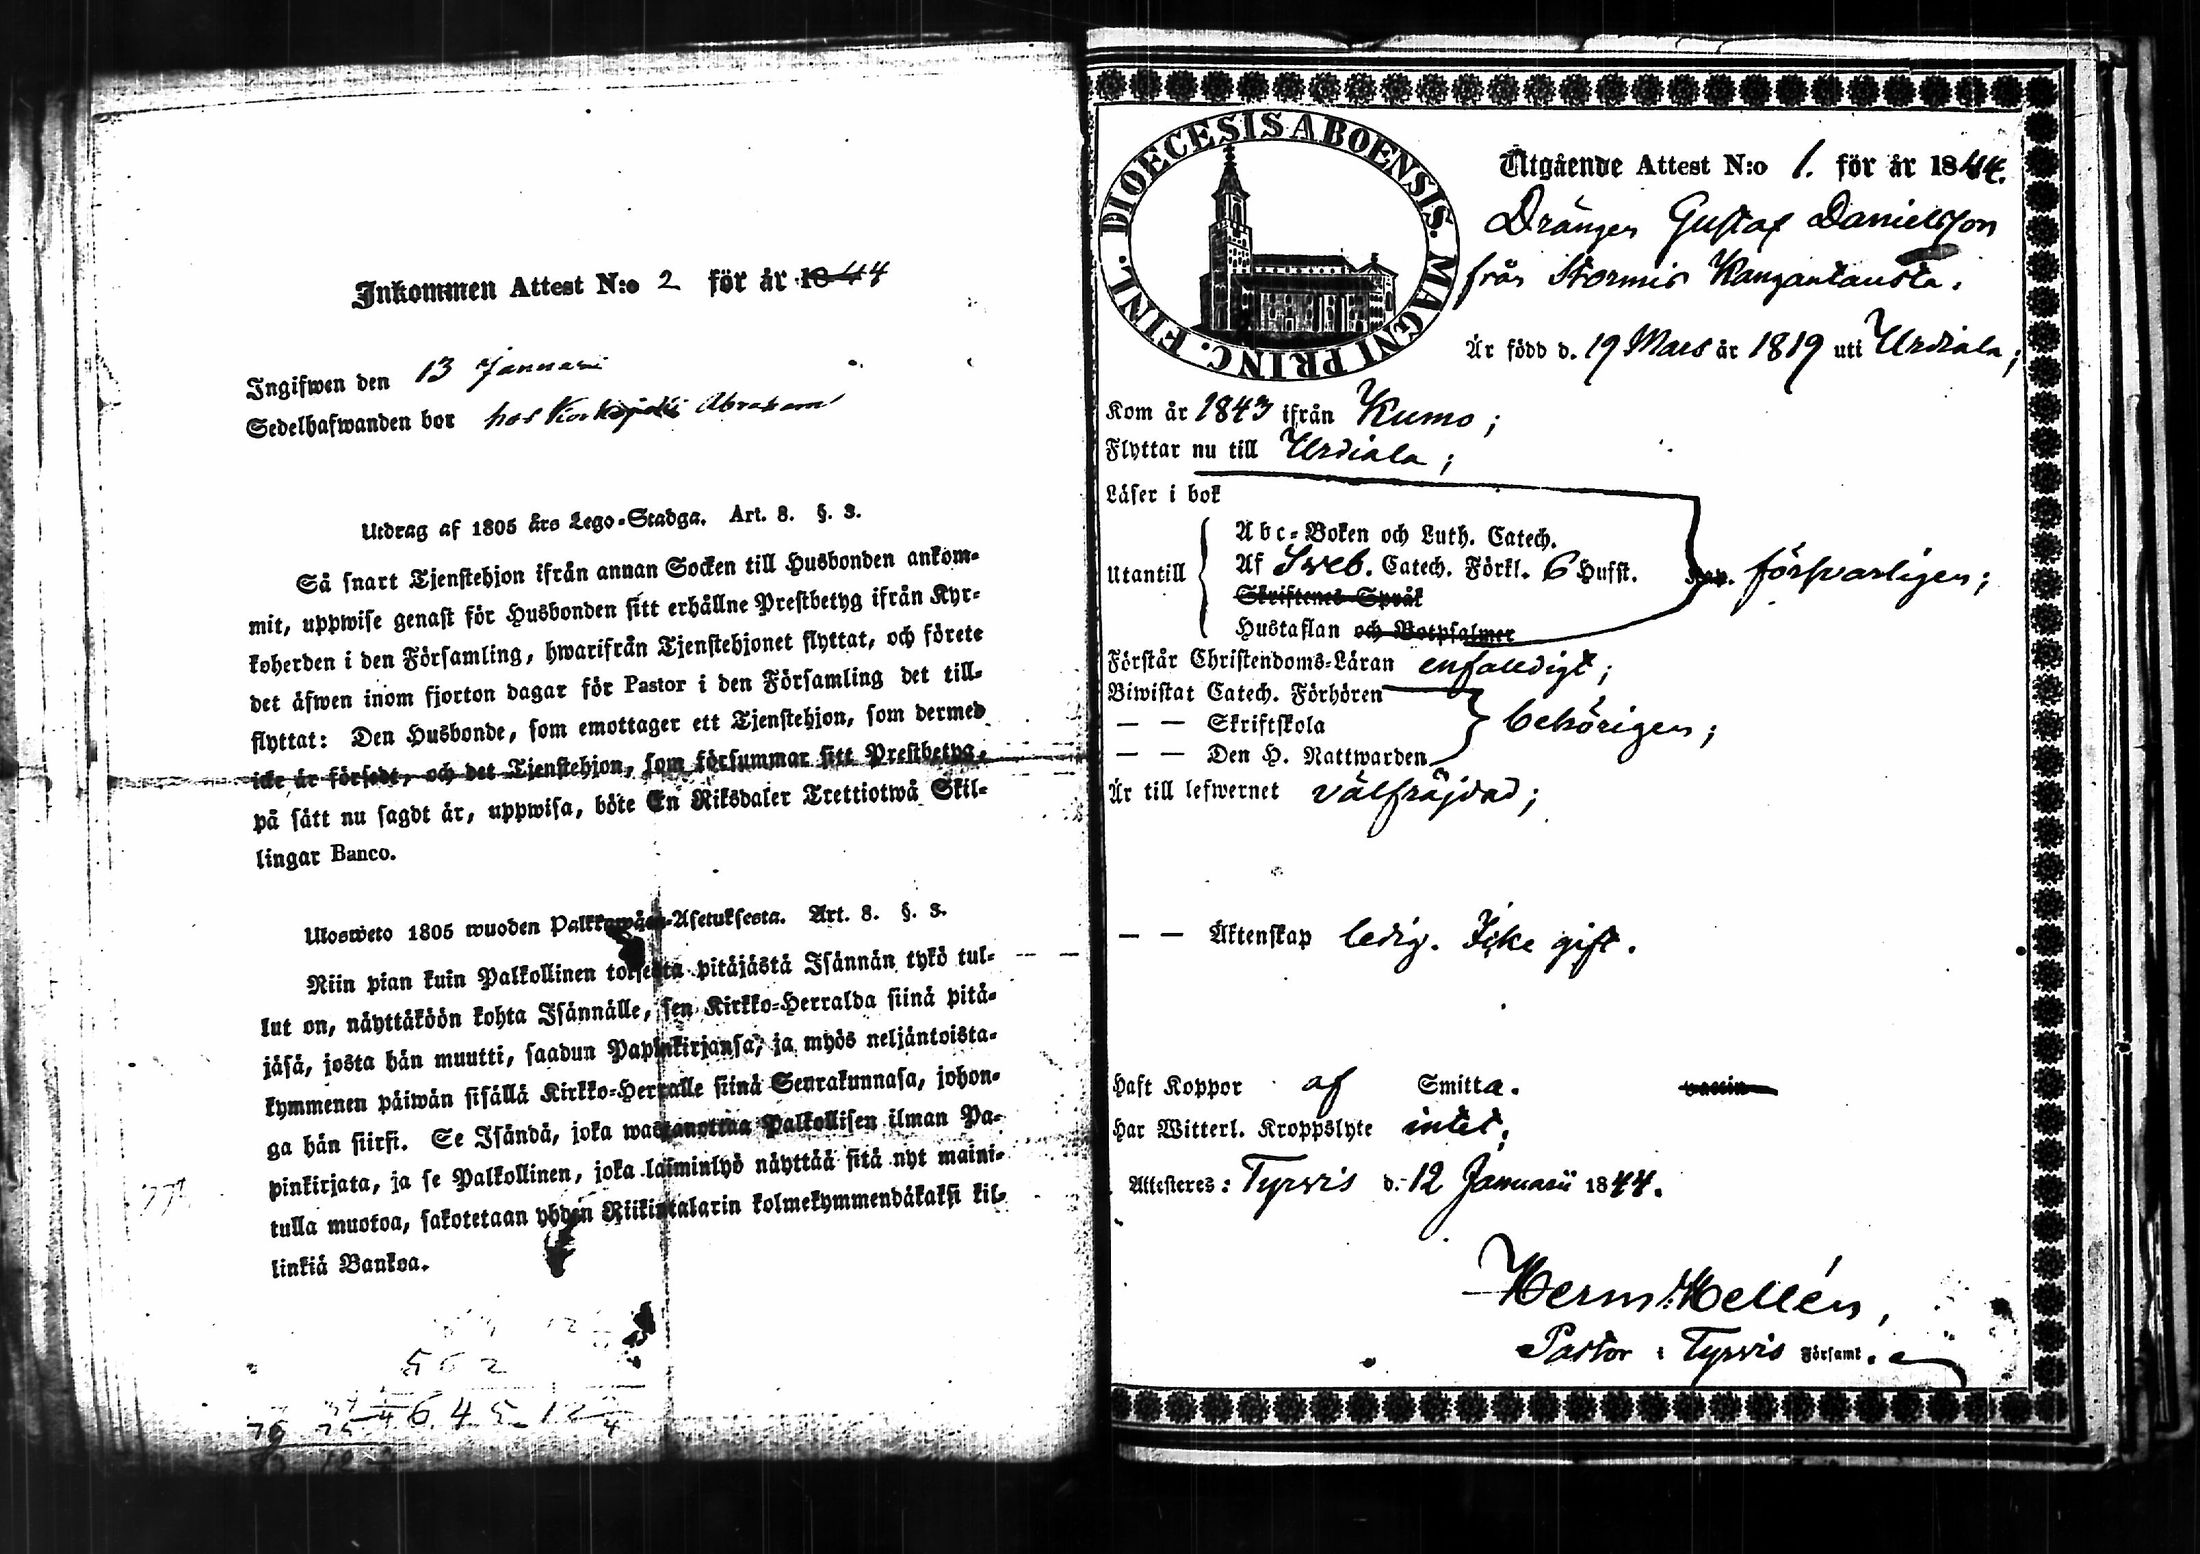 Inkommen Attest N:o 2 för år 1844
Ingifwen den 13 Januari
Sedelhafwanden bor hos Abraham
Utdrag af 1805 års Lego-Stadga. Art. 8. §. 3.
Så snart Tjenstehjon ifrån annan Socken till Husbonden ankom-
mit, uppwise genast för Husbonden sitt erhållne Prestbetyg ifrån Kyr-
koherden i den Församling, hwarifrån Tjenstehjonet flyttat, och förete
det äfwen inom fjorton dagar för Pastor i den Församling det till-
flyttat: Den Husbonde, som emottager ett Tjenstehjon, som dermed
icke är försedt, och det Tjenstehjon, som försummar sitt Prestbetyg,
på sätt nu sagdt är, uppwisa, böte En Riksdaler Trettiotwå Skil-
lingar Banco.
Ulosweto 1805 wuoden Palkkawäen-Asetuksesta. Art. 8. §. 3.
Niin pian kuin Palkollinen toisesta pitäjästä Isännän tykö tul-
lut on, näyttäköön kohta Isännälle, sen Kirkko-Herralda siinä pitä-
jäsä, josta hän muutti, saadun Papinkirjansa, ja myös neljäntoista-
kymmenen päiwän sisällä Kirkko-Herralle siinä Seurakunnasa, johon-
ga hän siirsi. Se Isändä, joka wastanottaa Palkollisen ilman Pa-
pinkirjata, ja se Palkollinen, joka laiminlyö näyttää sitä nyt maini-
tulla muotoa, sakotetaan yhden Riikintalarin kolmekymmendäkaksi kil-
linkiä Bankoa.
562
645 12
76 75 4
DIOECESIS ABOENSIS. MAGNI PRINC. FINL.
Utgående Attest N:o 1. för år 1844.
Drängen Gustaf Danielsson
från Stormis Kangantausta.
Är född d. 19 Mars år 1819 uti Urdiala;
Kom år 1843 ifrån Kumo;
Flyttar nu till Urdiala;
Läser i bok
Abc-Boken och Luth. Catech.
Utantill Af Sveb. Catech. Förkl. 6 Hufst. försvarligen;
Skriftenes Språk
Hustaflan och Botpsalmer
Förstår Christendoms-Läran enfaldigt;
Biwistat Catech. Förhören
— — Skriftskola behörigen;
— — Den H. Nattwarden
Är till lefwernet välfräjdad;
— — Äktenskap ledig. Icke gift.
Haft Koppor af Smitta. vaccin
Har Witterl. Kroppslyte intet;
Attesteres: Tyrvis d. 12 Januarii 1844.
Herm: Hellén,
Pastor i Tyrvis Församl.